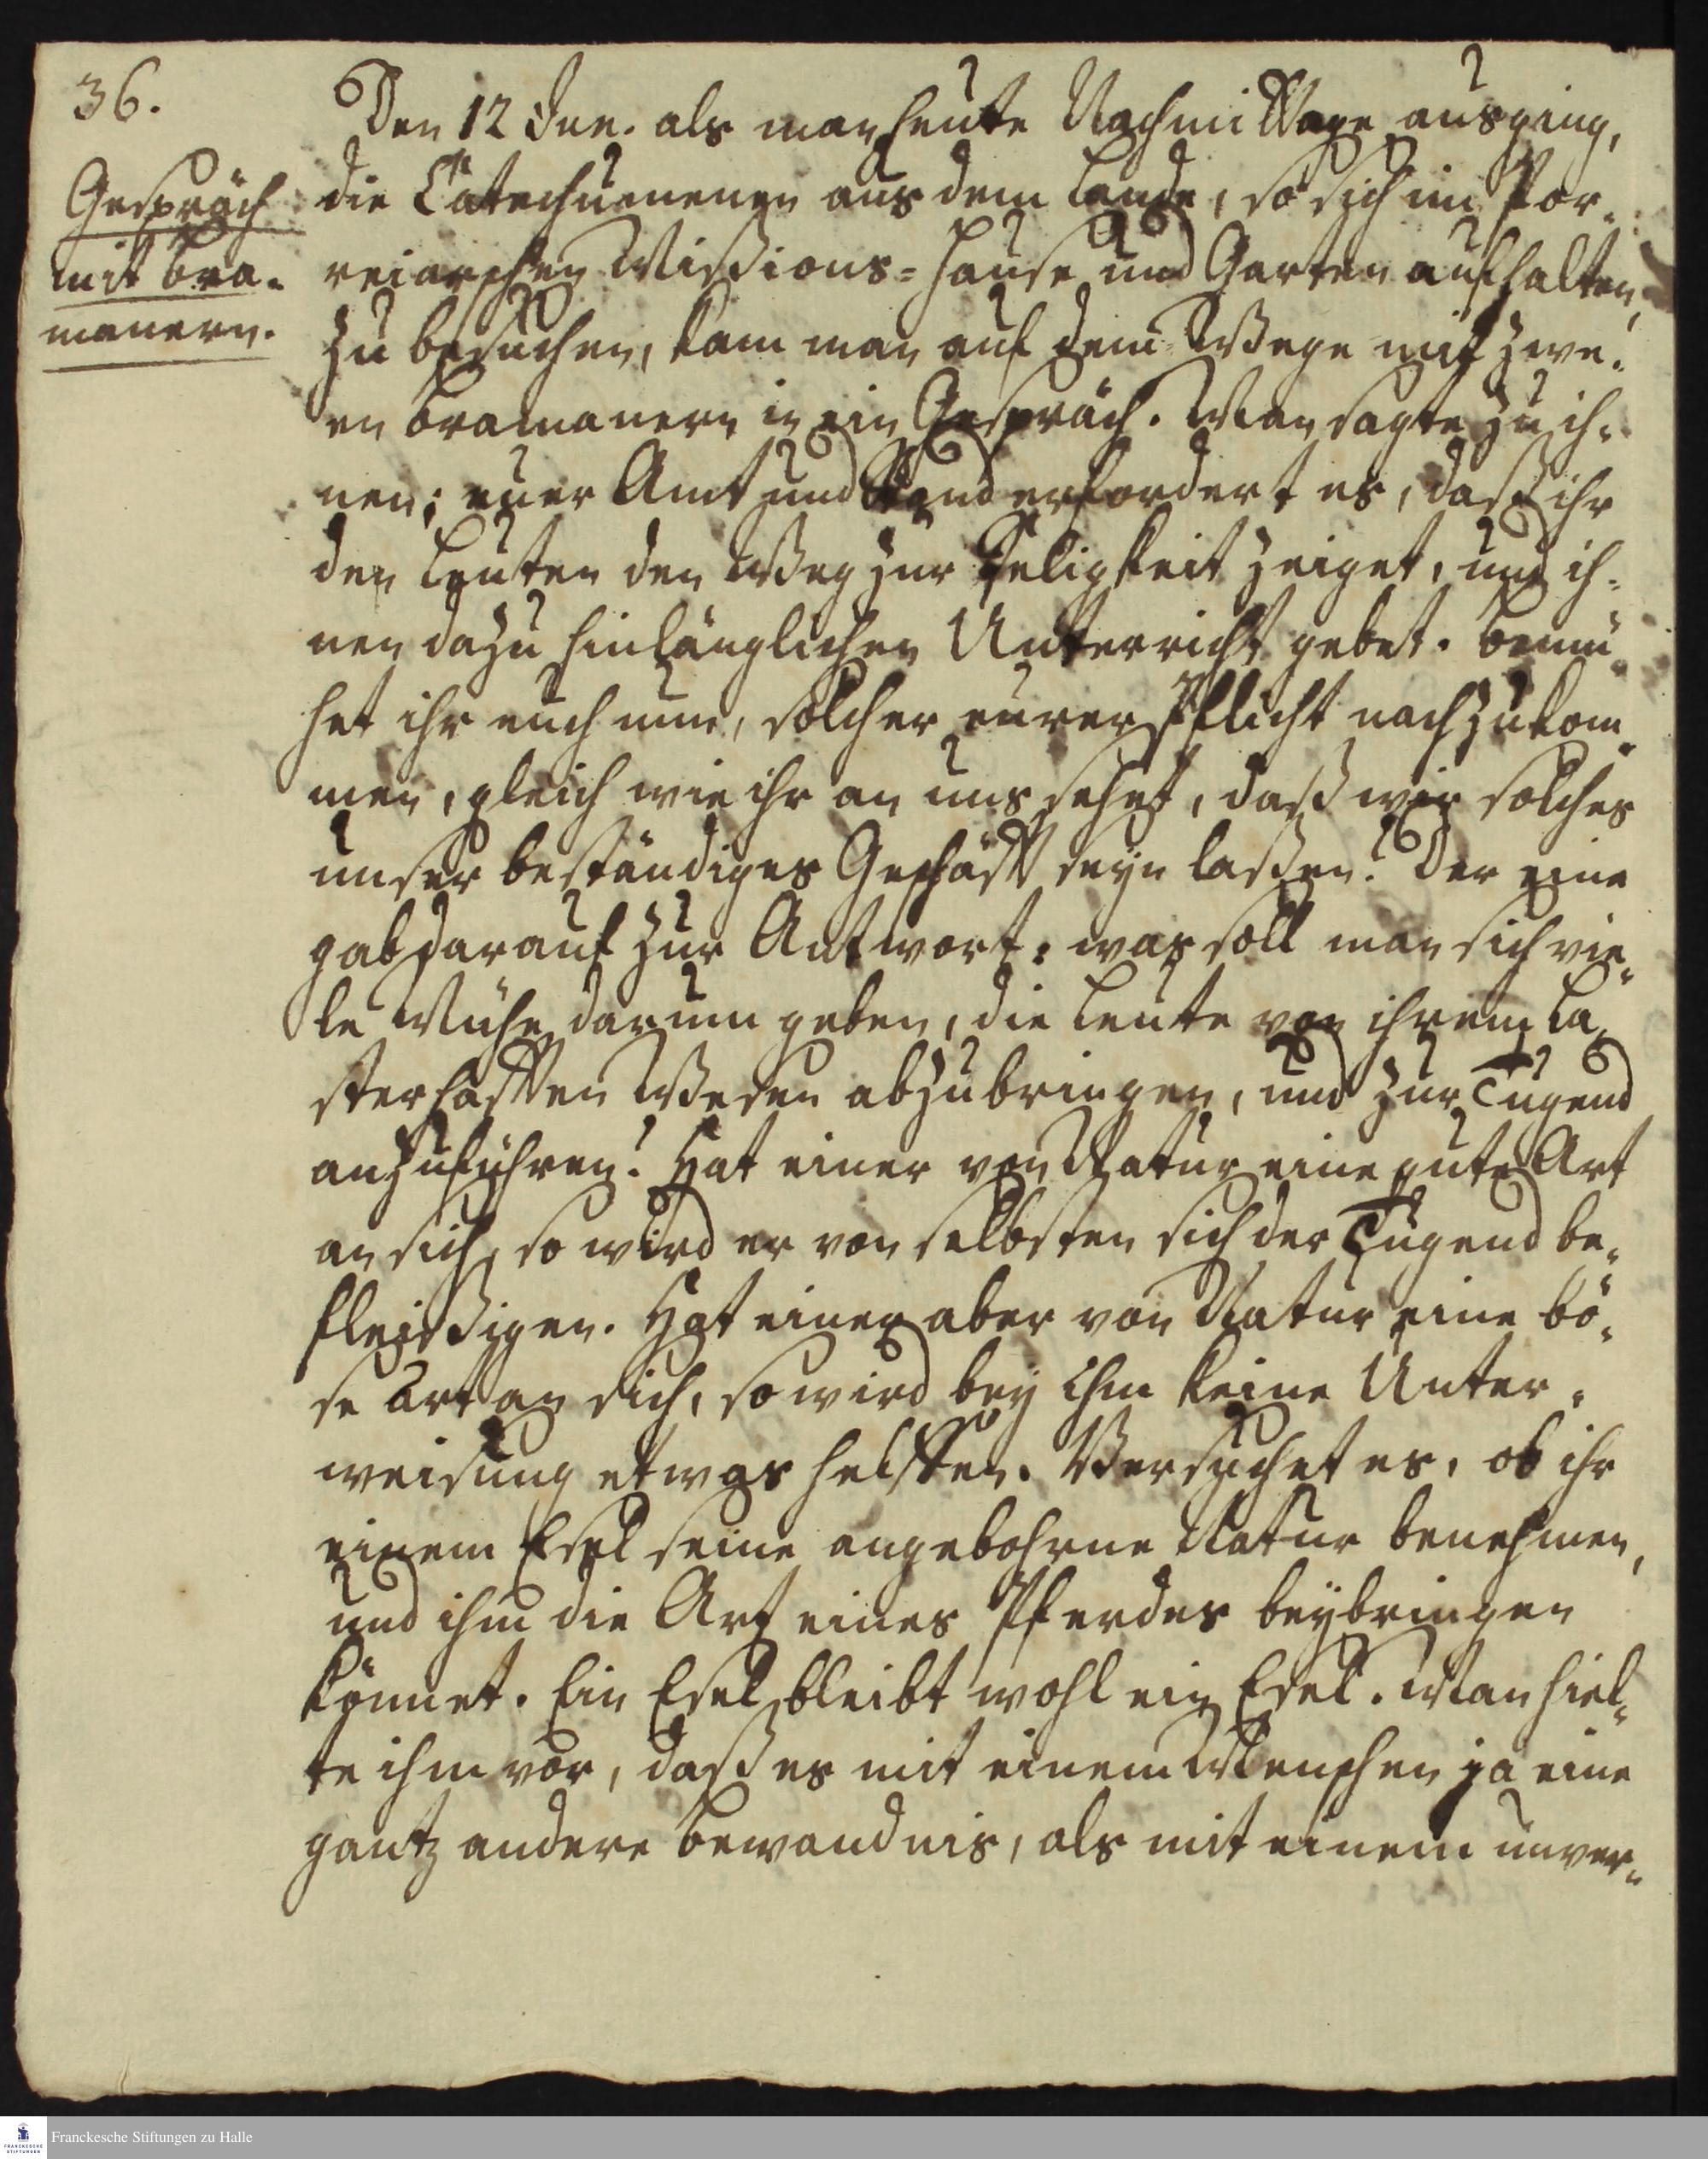 36.
Gespräch
mit Bra-
manern.
Den 12 Jun. als man heute Nachmittage ausging,
die Catechumenen aus dem Lande, so sich im Por-
reiarschen Missions-Hause und Garten aufhalten,
zu besuchen, kam man auf dem Wege mit zwe-
en Bramanern in ein Gespräch. Man sagte zu ih-
nen; euer Amt und Stand erfordert es, daß ihr
den Leuten den Weg zur Seligkeit zeiget, und ih-
nen dazu hinlänglichen Unterricht gebet. Bemü-
het ihr euch nun, solcher eurer Pflicht nachzukom-
men, gleich wie ihr an uns sehet, daß wir solches
unser beständiges Geschäfft seyn laßen? Der eine
gab darauf zur Antwort: was soll man sich vie-
le Mühe darum geben, die Leute von ihrem la-
sterhafften Wesen abzubringen, und zur Tugend
anzuführen? Hat einer von Natur eine gute Art
an sich, so wird er von selbsten sich der Tugend be-
fleißigen. Hat einer aber von Natur eine bö-
se Art an sich, so wird bey ihm keine Unter-
weisung etwas helffen. Versuchet es, ob ihr
einem Esel seine angebohrne Natur benehmen,
und ihm die Art eines Pferdes beybringen
könnet. Ein Esel bleibt wohl ein Esel. Man hiel-
te ihm vor, daß es mit einem Menschen ja eine
gantz andere Bewandnis, als mit einem unver-
FRANCKESCHE
STIFTUNGEN
Franckesche Stiftungen zu Halle